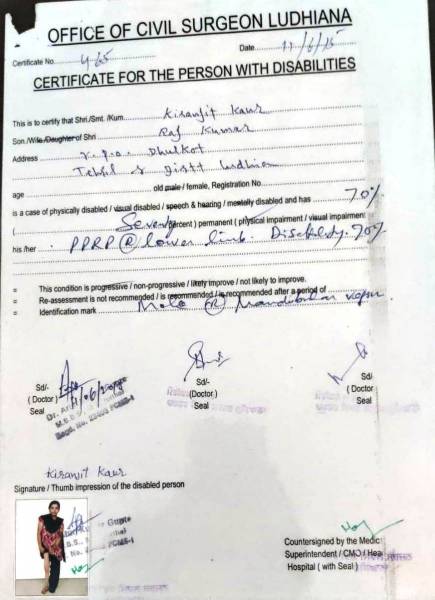 OFFICE OF CIVIL SURGEON LUDHIANA
Certificate No. 465 Date 11/6/15
CERTIFICATE FOR THE PERSON WITH DISABILITIES
This is to certify that Shri./Smt. /Kum. Kiranjit Kaur
Son./Wife./Daughter of Shri Raj Kumar
Address v.p.o. Dhulkot
Tehsil & Distt Ludhiana
age old male / female, Registration No.
is a case of physically disabled / visual disabled / speech & hearing / mentally disabled and has 70%
( Seventy percent) permanent ( physical impairment / visual impairment
his /her PPRP (R) lower limb. Disability. 70%
This condition is progressive / non-progressive / likely improve / not likely to improve.
Re-assessment is not recommended / is recommended / is recommended after a period of
Identification mark Mole (R) Mandibular
Sd/- Sd/- Sd/
( Doctor ) (Doctor) ( Doctor
Seal Seal Seal
Kiranjit Kaur
Signature / Thumb impression of the disabled person
Gupta
Countersigned by the Medic
Superintendent / CMO / Hea
Hospital ( with Seal )